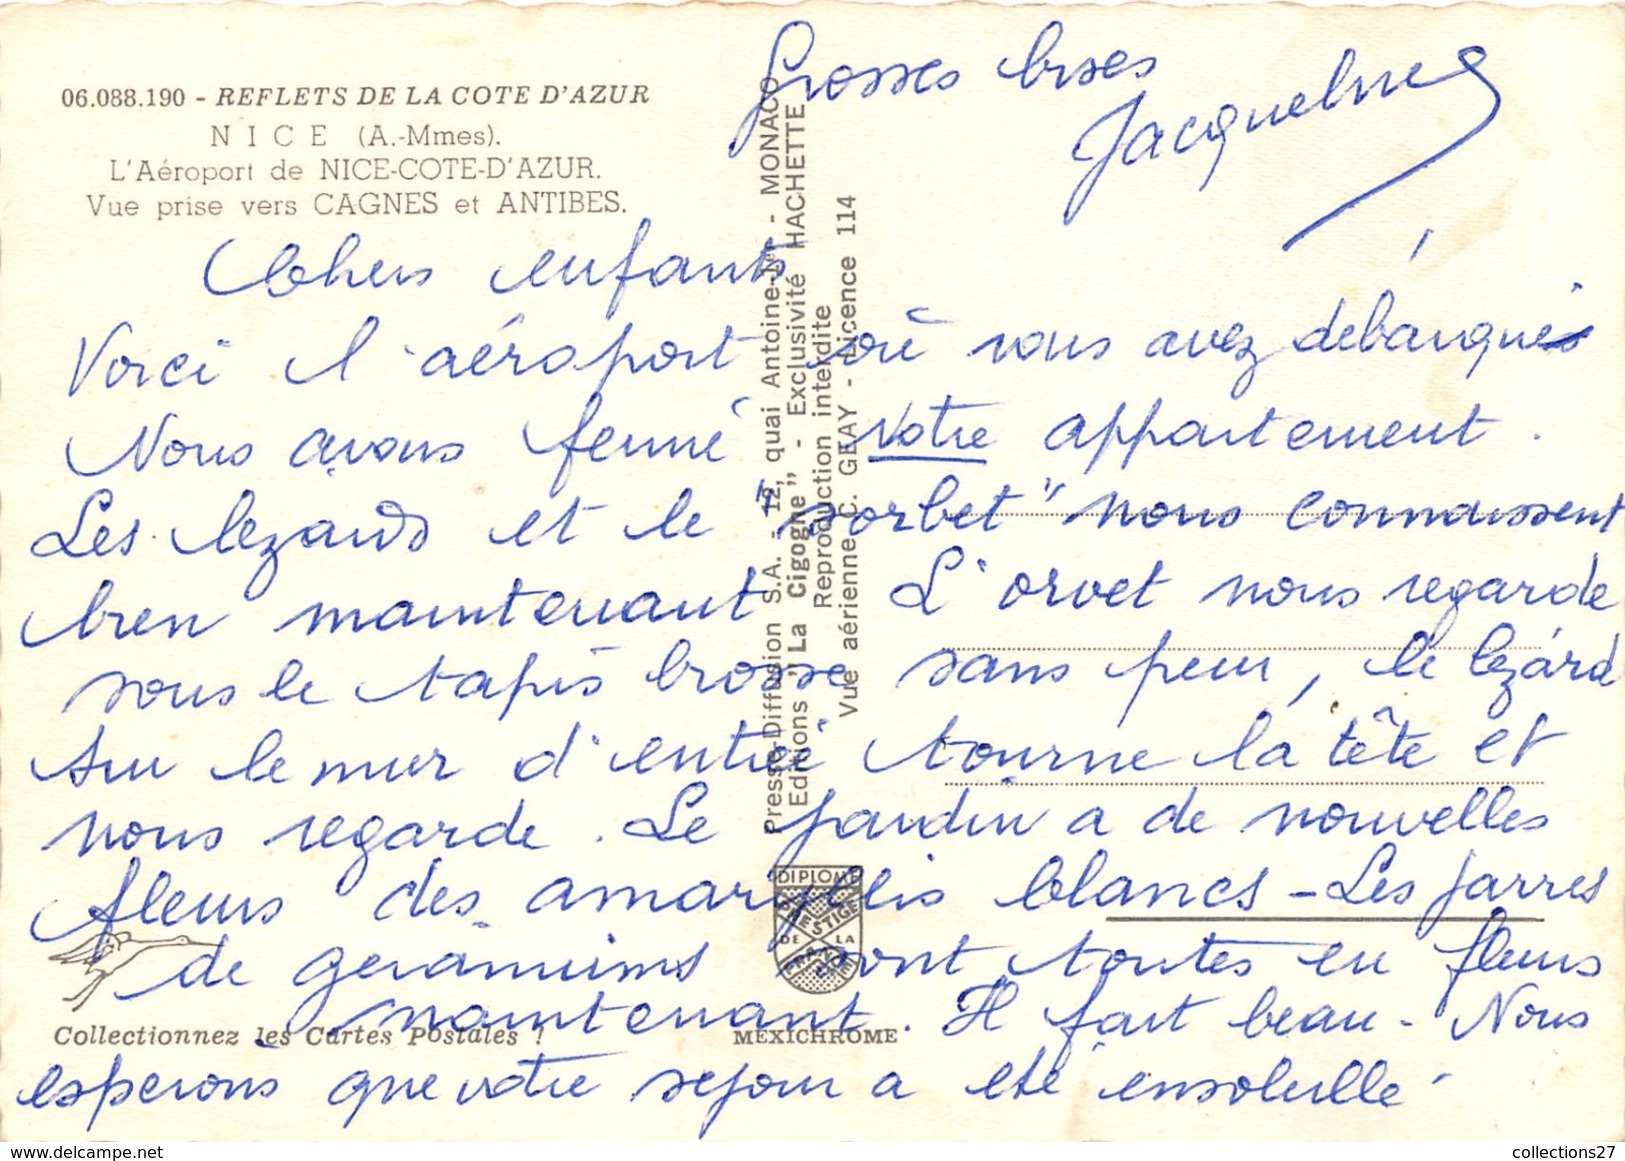 06.088.190 - REFLETS DE LA COTE D'AZUR
NICE (A.-Mmes).
L'Aéroport de NICE-COTE-D'AZUR.
Vue prise vers CAGNES et ANTIBES.
Grosses bises
Jacqueline
Chers enfants
Voici l'aéroport où vous avez débarqués
Nous avons fermé votre appartement.
Les lezards et le "sorbet" nous connaissent
bien maintenant. L'orvet nous regarde
sous le tapis brosse sans peur, le lézard
sur le mur d'entrée tourne la tête et
nous regarde. Le jardin a de nouvelles
fleurs des amaryllis blancs - Les jarres
de géraniums sont toutes en fleurs
maintenant. Il fait beau - Nous
esperons que votre sejour a été ensoleillé
Presse-Diffusion S.A. - 12, quai Antoine-Ier - MONACO
Editions "La Cigogne" - Exclusivité HACHETTE
Reproduction interdite
Vue aérienne C. GEAY - Licence 114
DIPLOME
PRESTIGE
DE LA
FRANCE
Collectionnez les Cartes Postales !
MEXICHROME
collections27